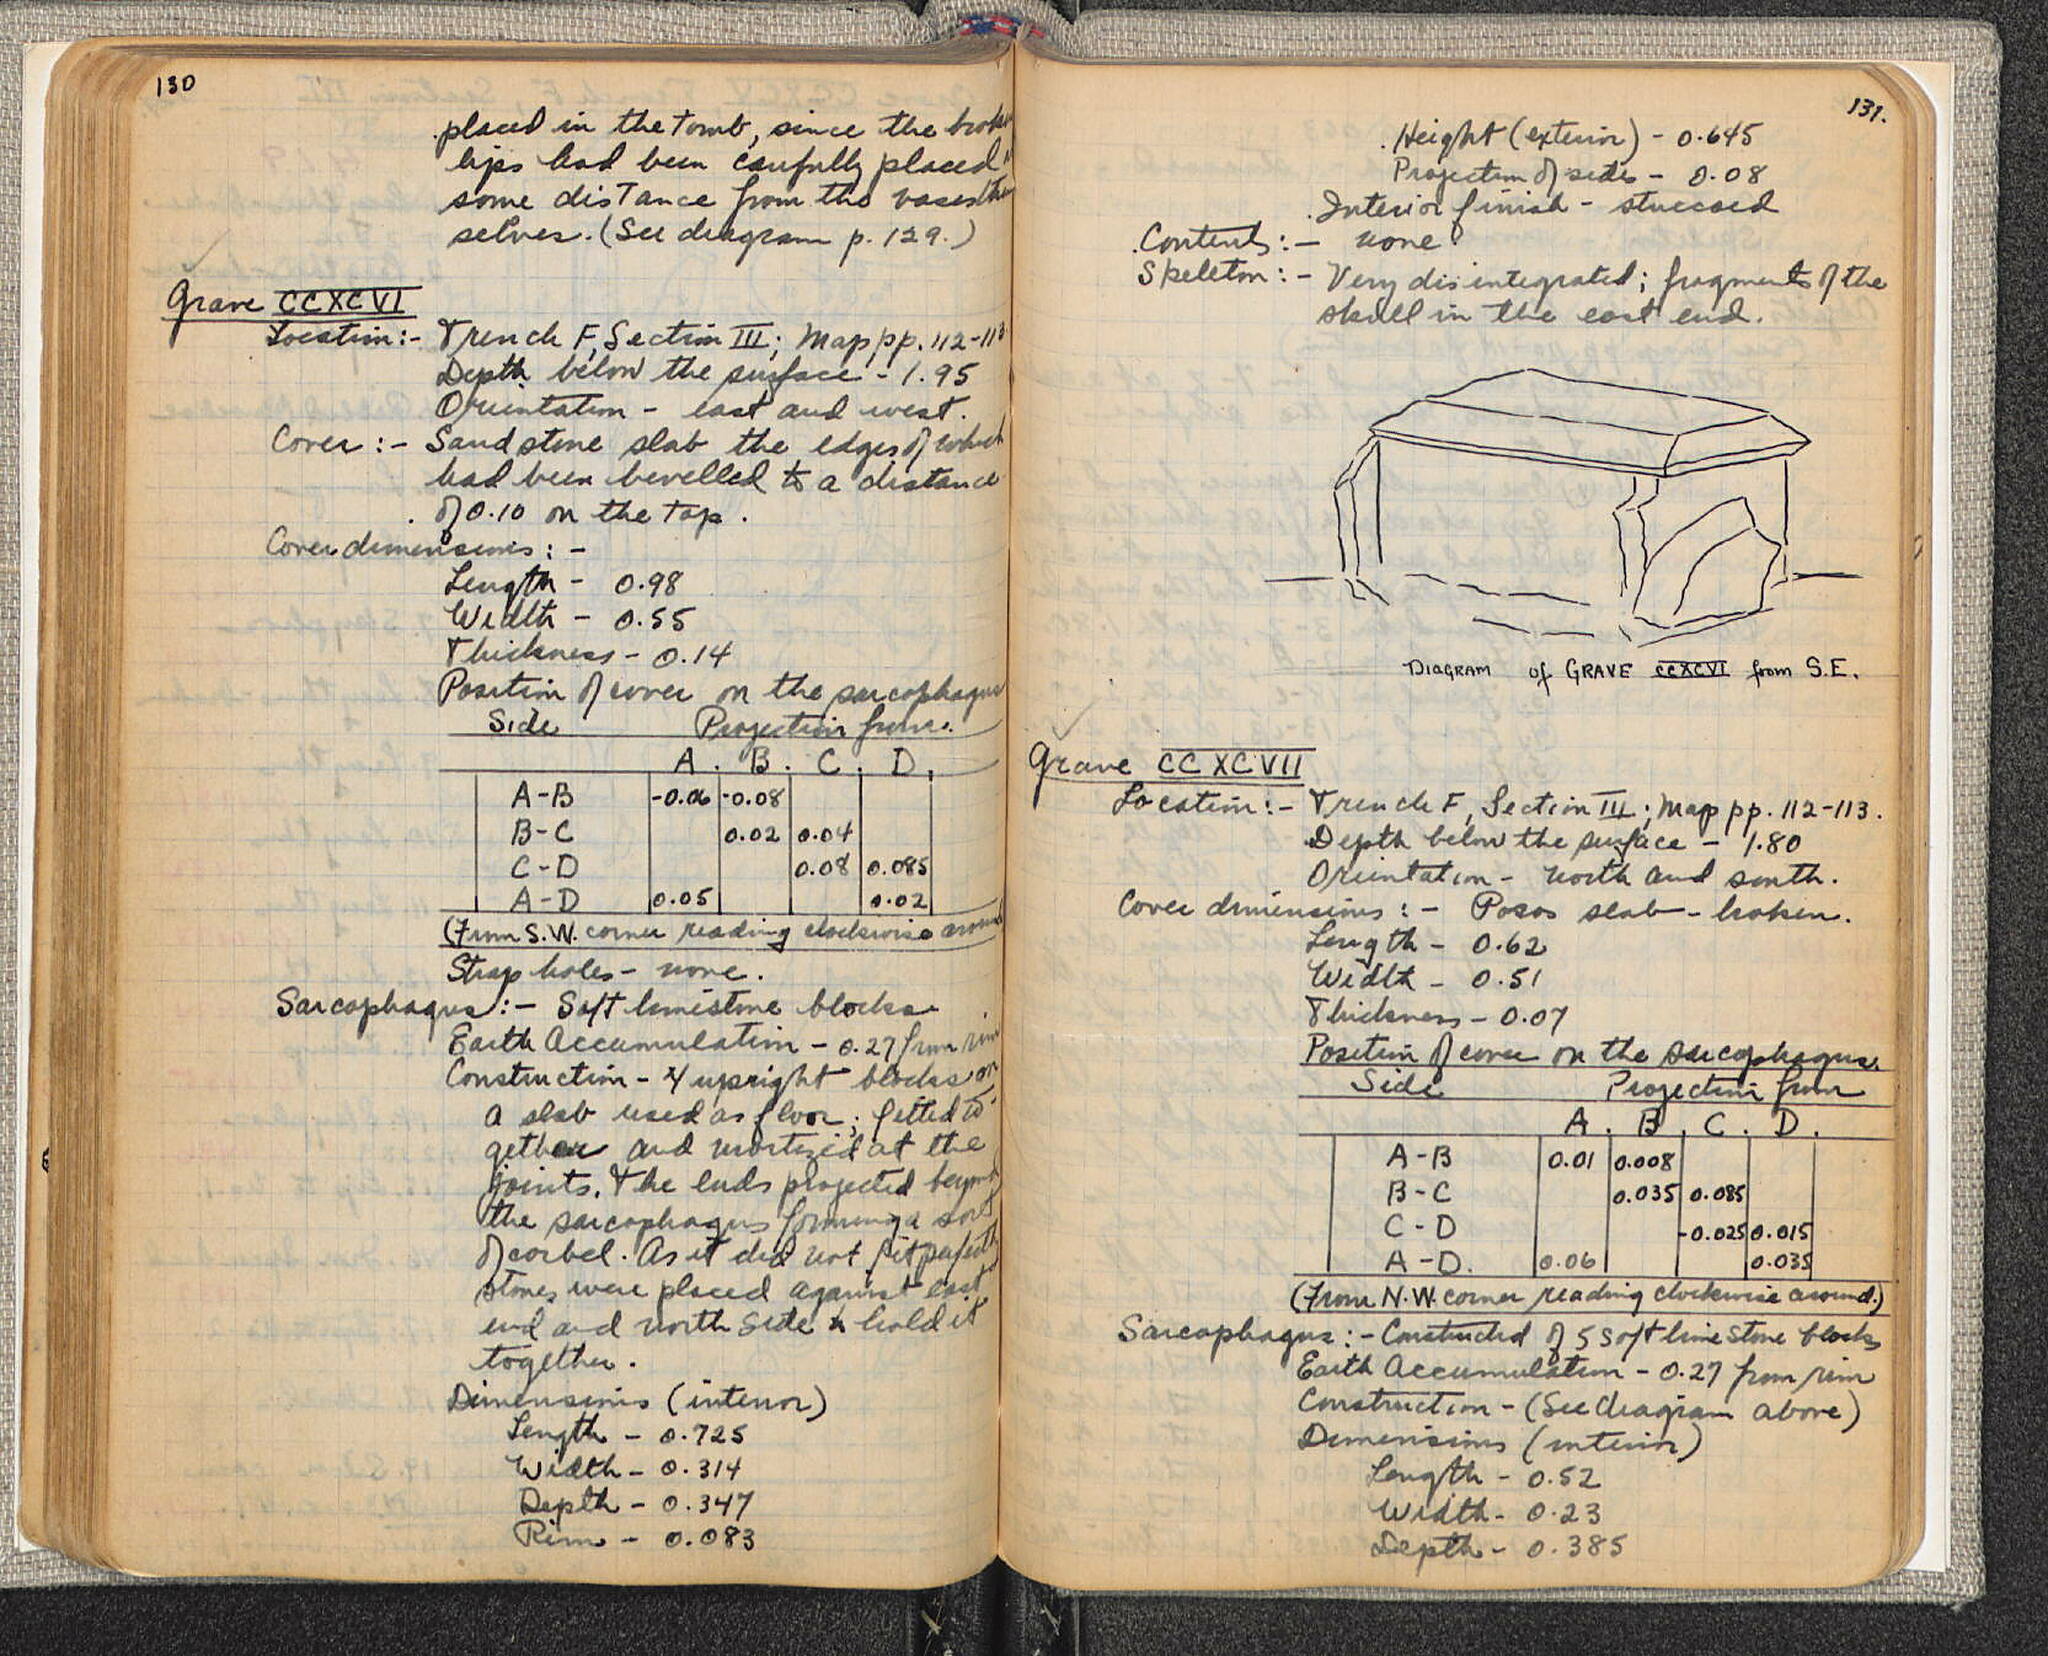 130
placed in the tomb, since the broken
lips had been carefully placed
some distance from the vases them
selves. (See diagram p. 129.)
Grave CCXCVI
Location:- Trench F, Section III; Map pp. 112-113.
Depth below the surface - 1.95
Orientation - east and west.
Cover :- Sandstone slab the edges of which
had been bevelled to a distance
of 0.10 on the top.
Cover dimensions: -
Length - 0.98
Width - 0.55
Thickness - 0.14
Position of cover on the sarcophagus
Side Projection from.
A. B. C. D.
A-B -0.06 -0.08
B-C 0.02 0.04
C-D 0.08 0.085
A-D 0.05 0.02
(From S.W. corner reading clockwise around
Strap holes - none.
Sarcophagus:- Soft limestone blocks
Earth Accumulation - 0.27 from rim
Construction - 4 upright blocks on
a slab used as floor; fitted to
gether and mortized at the
joints. The ends projected beyond
the sarcophagus forming a sort
of corbel. As it did not fit perfectly
stones were placed against east
end and north side to hold it
together.
Dimensions (interior)
Length - 0.725
Width - 0.314
Depth - 0.347
Rim - 0.083
131.
Height (exterior) - 0.645
Projection of sides - 0.08
Interior finish - stuccoed
Contents:- none
Skeleton:- Very disintegrated; fragments of the
skull in the east end.
DIAGRAM of GRAVE CCXCVI from S.E.
Grave CCXCVII
Location:- Trench F, Section III; Map pp. 112-113.
Depth below the surface - 1.80
Orientation - north and south.
Cover dimensions: - Poros slab - broken.
Length - 0.62
Width - 0.51
Thickness - 0.07
Position of cover on the sarcophagus.
Side Projection from
A. B. C. D.
A-B 0.01 0.008
B-C 0.035 0.085
C-D -0.025 0.015
A-D. 0.06 0.035
(From N.W. corner reading clockwise around.)
Sarcophagus:- Constructed of 5 soft limestone blocks
Earth Accumulation - 0.27 from rim
Construction - (See diagram above)
Dimensions (interior)
Length - 0.52
Width - 0.23
Depth - 0.385